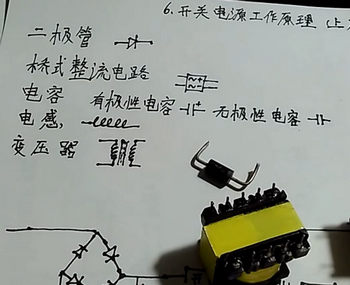 6.开关电源工作原理(上
二极管
桥式整流电路
电容 有极性电容 + 无极性电容
电感
变压器